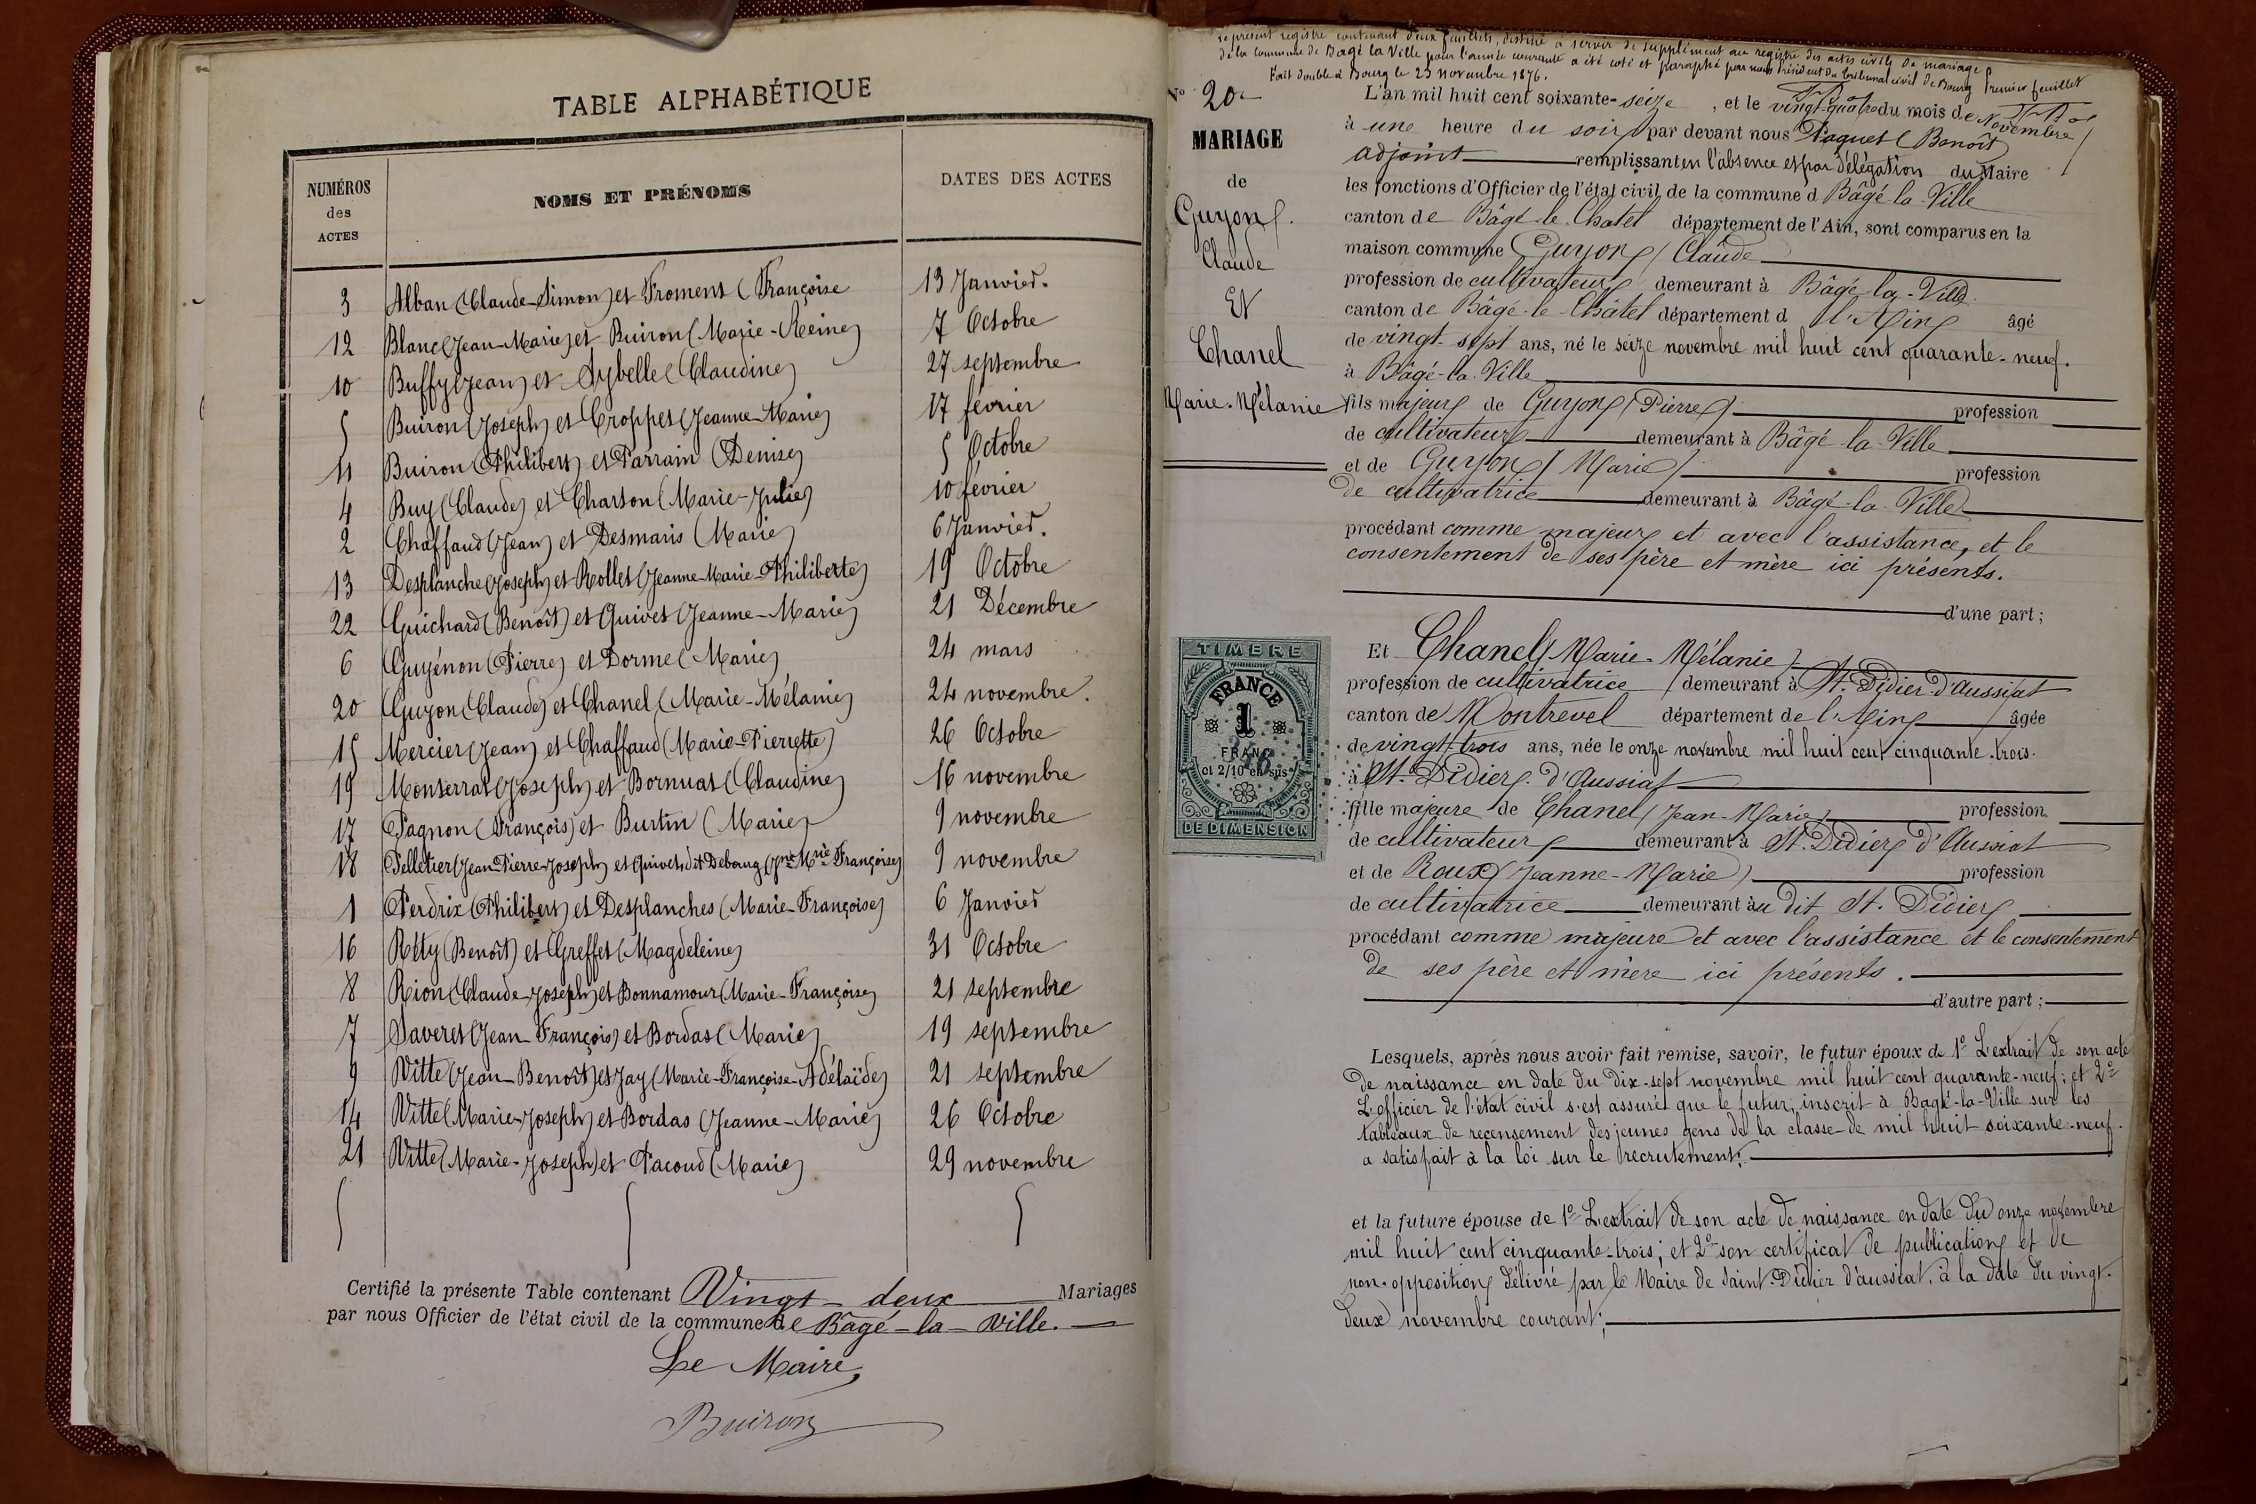 TABLE ALPHABÉTIQUE
NUMÉROS des ACTES
NOMS ET PRÉNOMS
DATES DES ACTES
3 Alban (Claude-Simon) et Froment (Françoise 13 Janvier.
12 Blanc (Jean-Marie) et Buiron (Marie-Reine) 7 Octobre
10 Buffy (Jean) et Sybelle (Claudine) 27 septembre
5 Buiron (Joseph) et Croppet (Jeanne-Marie) 17 février
11 Buiron (Philibert) et Parrain (Denise) 5 Octobre
4 Buy (Claude) et Charton (Marie-Julie) 10 février
2 Chaffaud (Jean) et Desmaris (Marie) 6 Janvier.
13 Desplanche (Joseph) et Rollet (Jeanne-Marie-Philiberte) 19 Octobre
22 Guichard (Benoît) et Quivet (Jeanne-Marie) 21 Décembre
6 Guyénon (Pierre) et Dorme (Marie) 24 mars
20 Guyon (Claude) et Chanel (Marie-Mélanie) 24 novembre.
15 Mercier (Jean) et Chaffaud (Marie-Pierrette) 26 Octobre
19 Monterrat (Joseph) et Bornuat (Claudine) 16 novembre
17 Pagnon (François) et Burtin (Marie) 9 novembre
18 Pelletier (Jean-Pierre-Joseph) et Quivet, dit Debourg (Jne Mrie Françoise) 9 novembre
1 Perdrix (Philibert) et Desplanches (Marie-Françoise) 6 Janvier
16 Réty (Benoît) et Greffet (Magdeleine) 31 Octobre
8 Rion (Claude-Joseph) et Bonnamour (Marie-Françoise) 21 septembre
7 Saveret (Jean-François) et Bordas (Marie) 19 septembre
9 Vitte (Jean-Benoît) et Jay (Marie-Françoise-Adélaïde) 21 septembre
14 Vitte (Marie-Joseph) et Bordas (Jeanne-Marie) 26 Octobre
21 Vitte (Marie-Joseph) et Pacoud (Marie) 29 novembre
Certifié la présente Table contenant Vingt-deux Mariages
par nous Officier de l'état civil de la commune de Bâgé-la-Ville.
Le Maire,
Buiron
Le présent registre contenant deux feuillets, destiné à servir de supplément au registre des actes civils de mariage
de la commune de Bagé la Ville pour l'année courante a été coté et paraphé par nous Président du tribunal civil de Bourg
Fait double à Bourg le 23 novembre 1876.
Premier feuillet
N° 20
MARIAGE
de
Guyon
Claude
Et
Chanel
Marie-Mélanie
L'an mil huit cent soixante-seize, et le vingt-quatre du mois de Novembre
à une heure du soir par devant nous Paquet (Benoît)
adjoint remplissant en l'absence et par délégation du Maire
les fonctions d'Officier de l'état civil de la commune d Bâgé la Ville
canton de Bâgé-le-Chatel département de l'Ain, sont comparus en la
maison commune Guyon (Claude
profession de cultivateur demeurant à Bâgé-la-Ville
canton de Bâgé-le-Châtel département d l'Ain âgé
de vingt-sept ans, né le seize novembre mil huit cent quarante-neuf.
à Bâgé-la-Ville
fils majeur de Guyon (Pierre) profession
de cultivateur demeurant à Bâgé-la-Ville
et de Guyon (Marie) profession
de cultivatrice demeurant à Bâgé-la-Ville
procédant comme majeur et avec l'assistance, et le
consentement de ses père et mère ici présents.
d'une part ;
Et Chanel (Marie-Mélanie)
profession de cultivatrice demeurant à St. Didier d'Aussiat
canton de Montrevel département de l'Ain âgée
de vingt-trois ans, née le onze novembre mil huit cent cinquante-trois.
à St. Didier d'Aussiat
fille majeure de Chanel (Jean-Marie) profession
de cultivateur demeurant à St. Didier d'Aussiat
et de Roux (Jeanne-Marie) profession
de cultivatrice demeurant àu dit St. Didier
procédant comme majeure et avec l'assistance et le consentement
de ses père et mère ici présents.
d'autre part ;
TIMBRE
FRANCE
1
FRANC
et 2/10 en sus
DE DIMENSION
Lesquels, après nous avoir fait remise, savoir, le futur époux de 1° L'extrait de son acte
de naissance en date du dix-sept novembre mil huit cent quarante-neuf ; et 2°
L'officier de l'état civil s'est assuré que le futur, inscrit à Bagé-la-Ville sur les
tableaux de recensement des jeunes gens de la classe de mil huit soixante-neuf.
a satisfait à la loi sur le recrutement ;
et la future épouse de 1° L'extrait de son acte de naissance en date du onze novembre
mil huit cent cinquante-trois ; et 2° son certificat de publication et de
non-opposition délivré par le Maire de Saint-Didier d'aussiat, à la date du vingt-
deux novembre courant ;